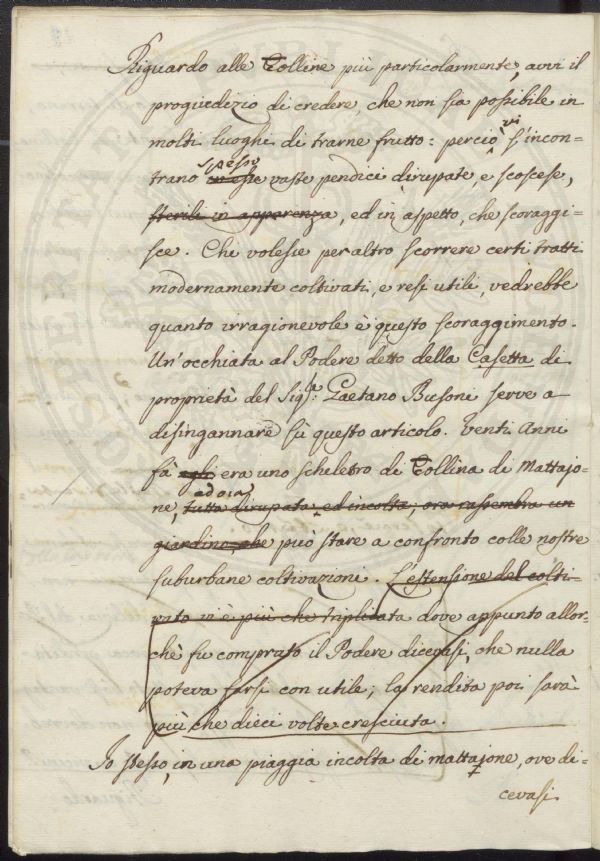 Riguardo alle Colline più particolarmente, avvi il
progiudizio di credere, che non sia possibile in
molti luoghi di trarne frutto: perciò vi s'incon-
trano spesso vaste pendici dirupate, e scoscese,
sterili in apparenza, ed in aspetto, che scoraggi-
sce. Chi volesse per altro scorrere certi tratti
modernamente coltivati, e resi utili, vedrebbe
quanto irragionevole è questo scoraggimento.
Un'occhiata al Podere detto della Casetta di
proprietà del Sigr. Gaetano Busoni serve a
disingannare sù questo articolo. Venti Anni
fà egli era uno scheletro di Collina di Mattajo-
ne, ed ora tutta dirupata, ed incolta; ora rassembra un
giardino, che può stare a confronto colle nostre
suburbane coltivazioni. L'estensione del colti-
vato vi è più che triplicata dove appunto allor-
chè fu comprato il Podere dicevasi, che nulla
poteva farsi con utile; la rendita poi sarà
più che dieci volte cresciuta.
Io stesso, in una piaggia incolta di mattajone, ove di-
cevasi